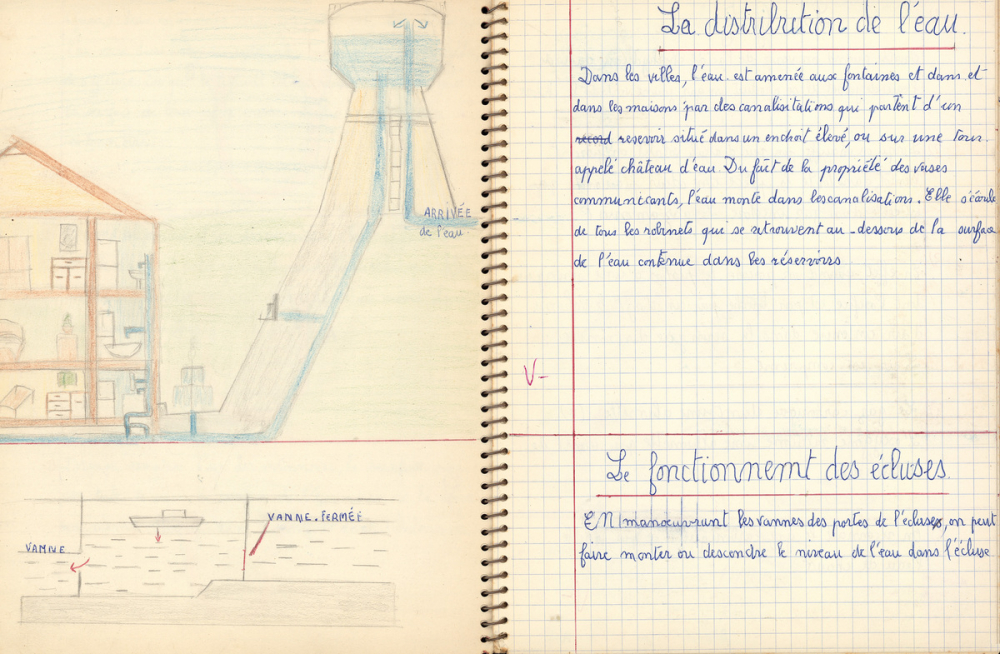 ARRIVÉE
de l'eau.
VANNE
VANNE.FERMÉE
La distribution de l'eau.
Dans les villes, l'eau est amenée aux fontaines et dans et
dans les maisons par des canalisitations qui partent d'un
record reservoir situé dans un endroit élevé, ou sur une tour
appelé château d'eau Du fait de la propriété des vases
communicants, l'eau monte dans les canalisations. Elle s'écoule
de tous les robinets qui se retrouvent au-dessous de la surface
de l'eau contenue dans les réservoirs
V-
Le fonctionnemt des écluses
EN manoeuvrant les vannes des portes de l'écluses, on peut
faire monter ou descendre le niveau de l'eau dans l'écluse